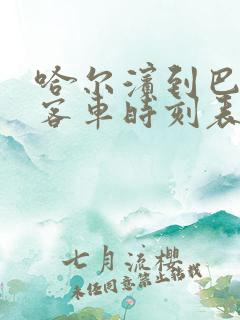 哈尔滨到巴
客车时刻表
七月流樱
未经同意禁止转载